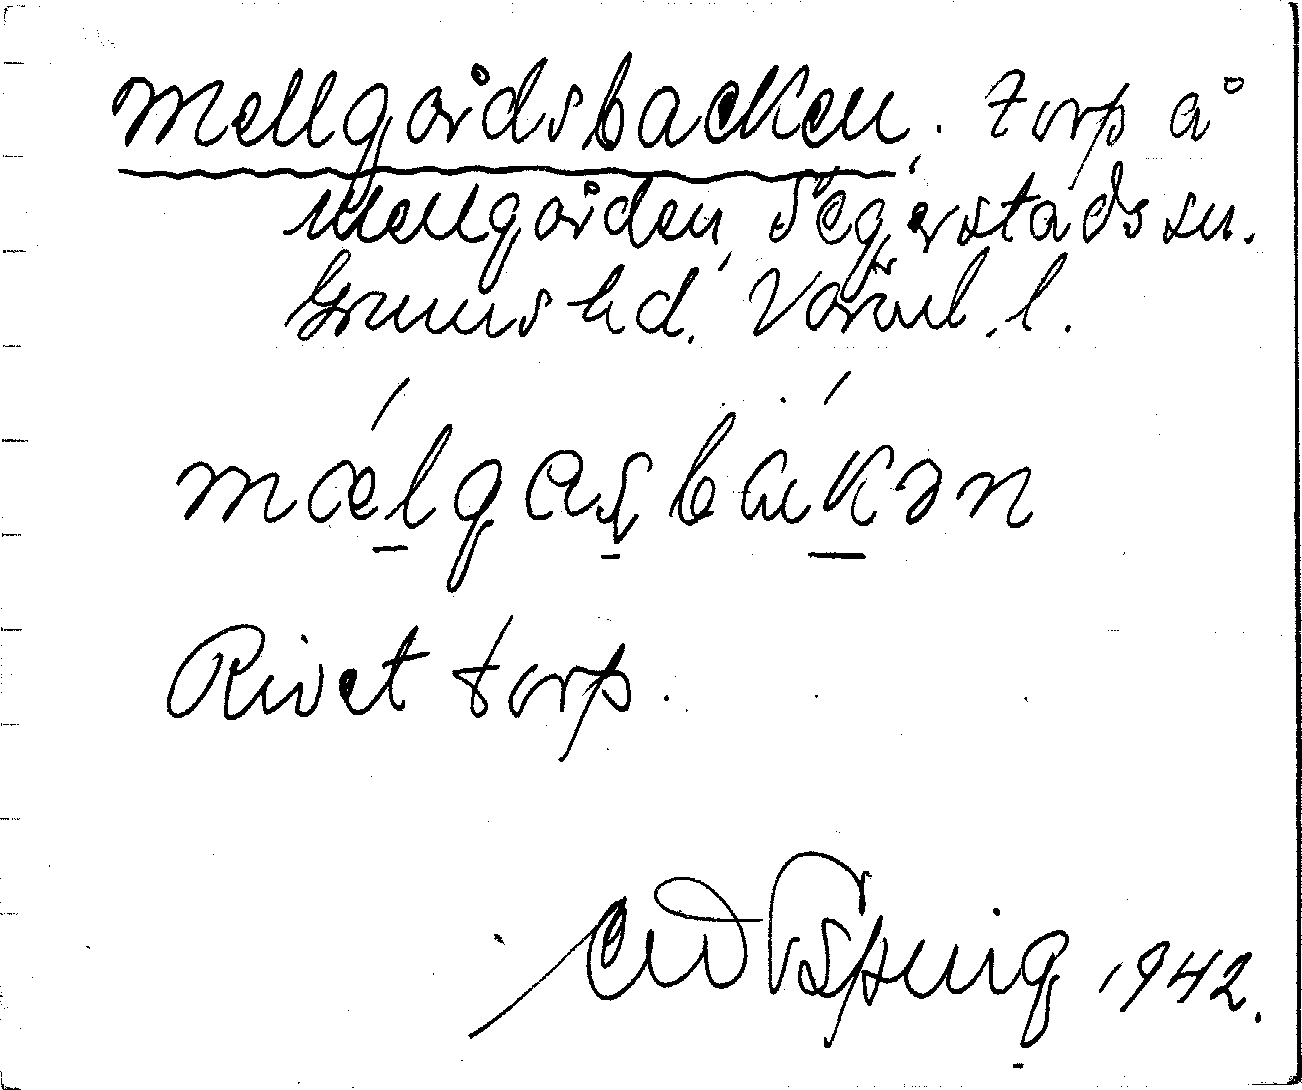 Mellgårdsbacken. Torp å
Mellgården, Segerstads sn.
Grums hd. Värml. l.
mælgasbakən
Rivet torp.
1942.